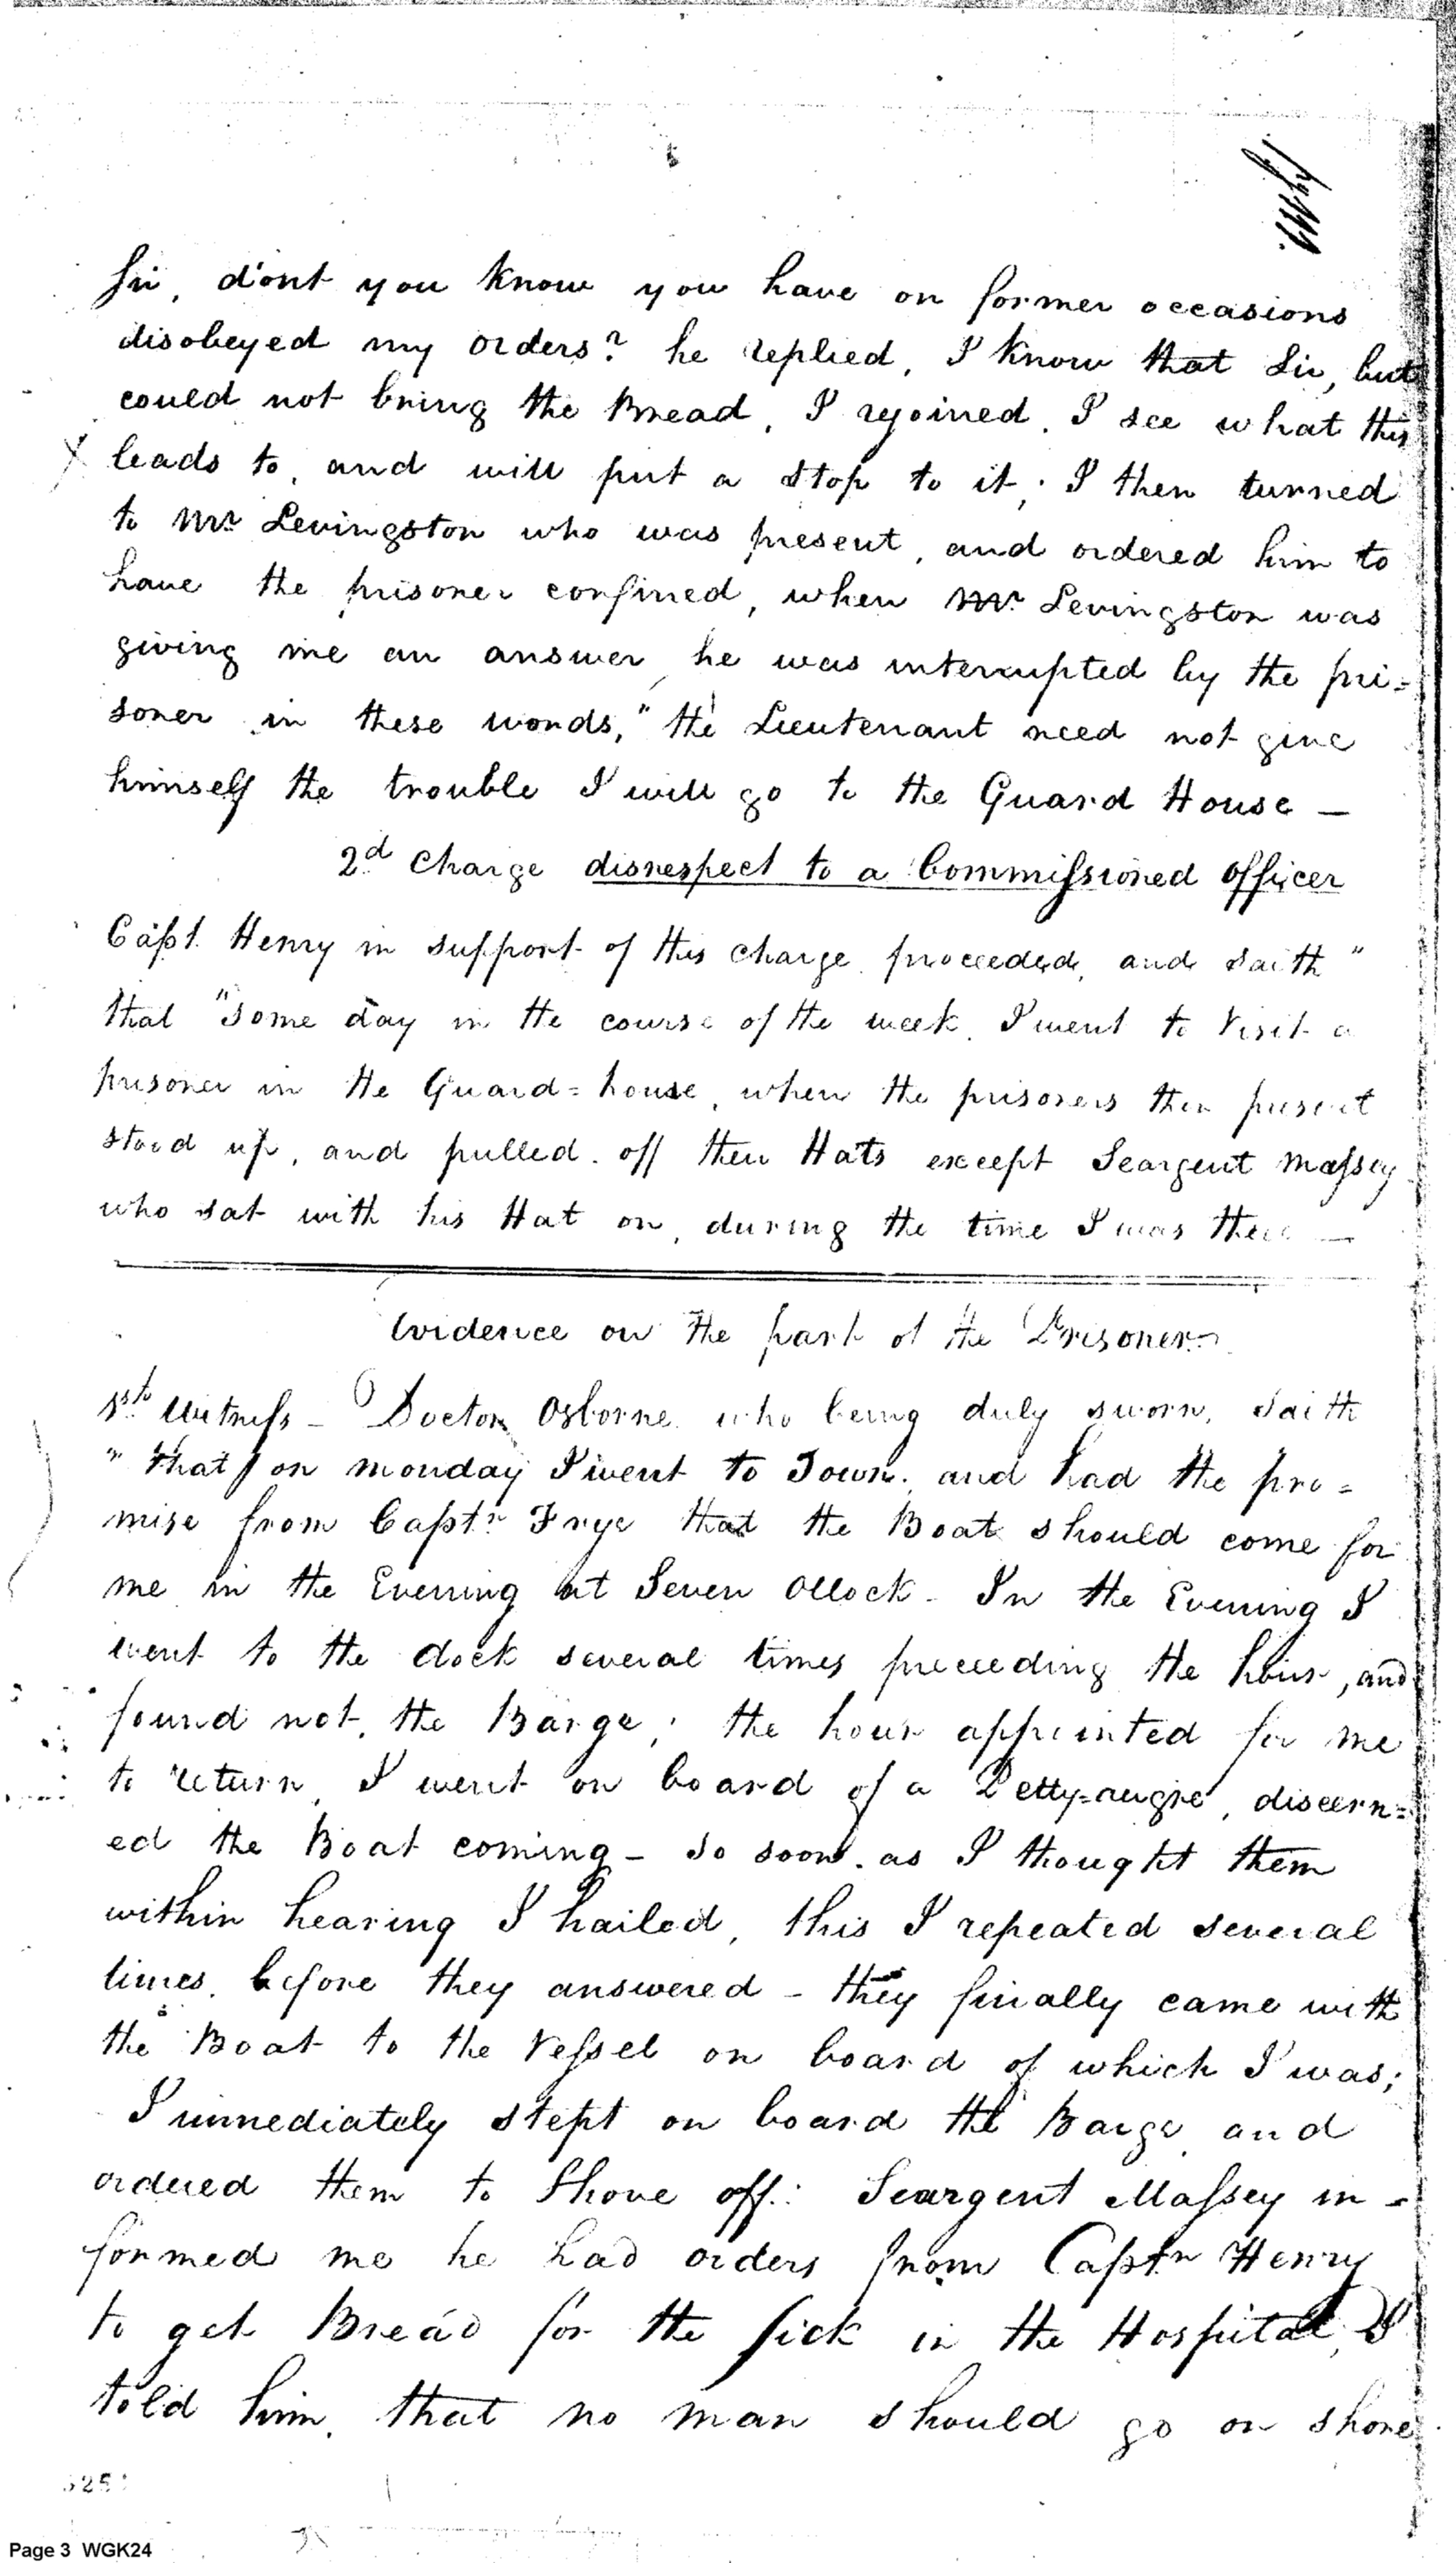 Sir, d'ont you know you have on former occasions
disobeyed my orders? he replied, I know that Sir, but
could not bring the Bread, I rejoined. I see what this
leads to, and will put a stop to it; I then turned
to Mr. Levingston who was present, and ordered him to
have the prisoner confined, when Mr. Levingston was
giving me an answer, he was interrupted by the pri=
soner in these words, "the Lieutenant need not give
himself the trouble I will go to the Guard House —
2d. Charge disrespect to a Commissioned officer
Capt. Henry in support of this charge proceeded, and saith "
that "some day in the course of the week, I went to visit a
prisoner in the Guard=house, when the prisoners then present
stood up, and pulled off their Hats except Seargent Massey
who sat with his Hat on, during the time I was there —
Evidence on the part of the Prisoner
1st. Witness - Doctor Osborne who being duly sworn, saith
" that on monday I went to Town; and had the pro=
mise from Captn. Frye that the Boat should come for
me in the Evening at Seven OClock - In the Evening I
went to the dock several times preceeding the hour, and
found not, the Barge; the hour appointed for me
to return, I went on board of a Petty=augre, discern=
ed the Boat coming - so soon as I thought them
within hearing I hailed, this I repeated several
times before they answered - they finally came with
the Boat to the Vessel on board of which I was;
I immediately stept on board the Barge and
ordered them to Shove off: Seargent Massey in-
formed me he had orders from Captn Henry
to get Bread for the Sick in the Hospital, I
told him, that no man should go on shore
Page 3 WGK24